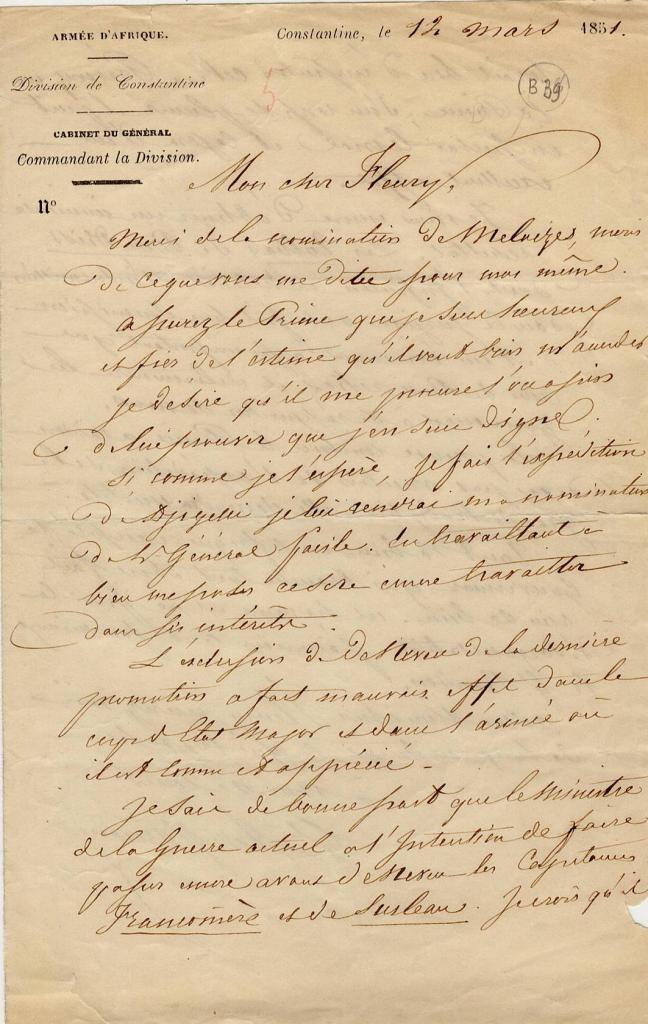 ARMÉE D'AFRIQUE.
Constantine, le 12 mars 1851.
Division de Constantine
5
B 39
CABINET DU GÉNÉRAL
Commandant la Division.
N°
Mon cher Fleury,
Merci de la nomination de Meloizes, merci
de ce que vous me dites pour moi même.
assurez le Prince que je suis heureux
et fier de l'estime qu'il veut bien m'accorder
je désire qu'il me procure l'occasion
de lui prouver que j'en suis digne.
Si comme je l'espère, je fais l'expédition
de Djigelli je lui rendrai ma nomination
de Gén. Général facile. En travaillant à
bien me poser ce sera encore travailler
dans ses intérêts.
L'exclusion de De Neveu de la dernière
promotion a fait mauvais effet dans le
corps d'Etat Major et dans l'armée où
il est connu et apprécié.
Je sais de bonne part que le Ministre
de la Guerre actuel a l'intention de faire
passer encore avant De Neveu les Capitaines
Franconière et de Susleau. Je crois qu'il